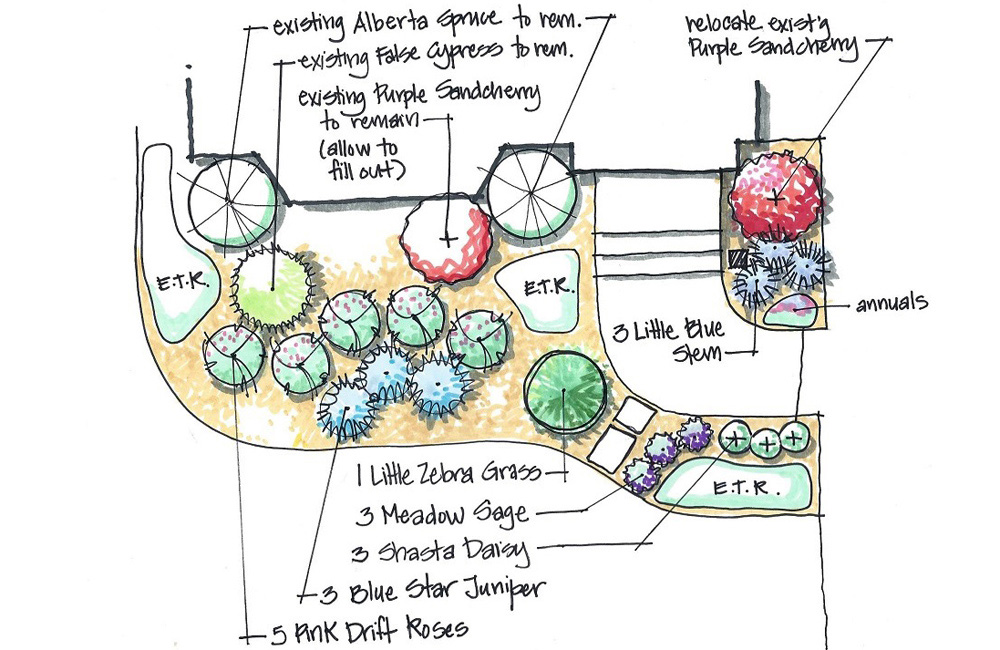 existing Alberta Spruce to rem.
existing False Cypress to rem.
existing Purple Sandcherry
to remain
(allow to
fill out)
relocate exist'g
Purple Sandcherry
E.T.R.
E.T.R.
annuals
3 Little Blue
Stem
E.T.R.
1 Little Zebra Grass
3 Meadow Sage
3 Shasta Daisy
3 Blue Star Juniper
5 Pink Drift Roses